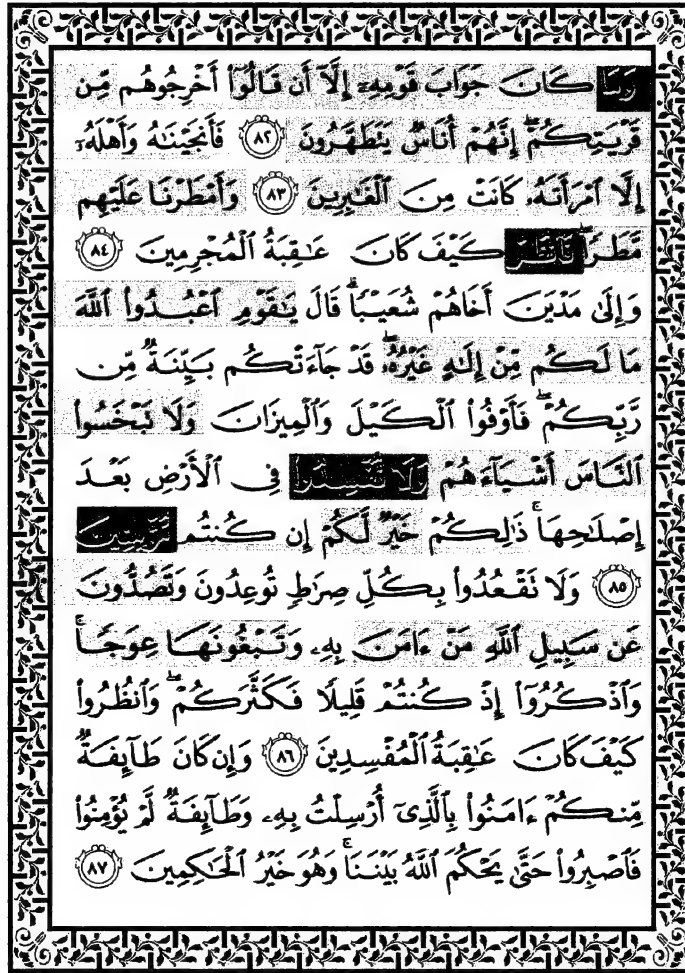 وَمَا كَانَ جَوَابَ قَوْمِهِۦٓ إِلَّآ أَن قَالُوٓا۟ أَخْرِجُوهُم مِّن
قَرْيَتِكُمْ ۖ إِنَّهُمْ أُنَاسٌ يَتَطَهَّرُونَ ٨٢ فَأَنجَيْنَٰهُ وَأَهْلَهُۥٓ
إِلَّا ٱمْرَأَتَهُۥ كَانَتْ مِنَ ٱلْغَٰبِرِينَ ٨٣ وَأَمْطَرْنَا عَلَيْهِم
مَّطَرًا ۖ فَٱنظُرْ كَيْفَ كَانَ عَٰقِبَةُ ٱلْمُجْرِمِينَ ٨٤
وَإِلَىٰ مَدْيَنَ أَخَاهُمْ شُعَيْبًا ۗ قَالَ يَٰقَوْمِ ٱعْبُدُوا۟ ٱللَّهَ
مَا لَكُم مِّنْ إِلَٰهٍ غَيْرُهُۥ ۖ قَدْ جَآءَتْكُم بَيِّنَةٌ مِّن
رَّبِّكُمْ ۖ فَأَوْفُوا۟ ٱلْكَيْلَ وَٱلْمِيزَانَ وَلَا تَبْخَسُوا۟
ٱلنَّاسَ أَشْيَآءَهُمْ وَلَا تُفْسِدُوا۟ فِى ٱلْأَرْضِ بَعْدَ
إِصْلَٰحِهَا ۚ ذَٰلِكُمْ خَيْرٌ لَّكُمْ إِن كُنتُم مُّؤْمِنِينَ
٨٥ وَلَا تَقْعُدُوا۟ بِكُلِّ صِرَٰطٍ تُوعِدُونَ وَتَصُدُّونَ
عَن سَبِيلِ ٱللَّهِ مَنْ ءَامَنَ بِهِۦ وَتَبْغُونَهَا عِوَجًا ۚ
وَٱذْكُرُوٓا۟ إِذْ كُنتُمْ قَلِيلًا فَكَثَّرَكُمْ ۖ وَٱنظُرُوا۟
كَيْفَ كَانَ عَٰقِبَةُ ٱلْمُفْسِدِينَ ٨٦ وَإِن كَانَ طَآئِفَةٌ
مِّنكُمْ ءَامَنُوا۟ بِٱلَّذِىٓ أُرْسِلْتُ بِهِۦ وَطَآئِفَةٌ لَّمْ يُؤْمِنُوا۟
فَٱصْبِرُوا۟ حَتَّىٰ يَحْكُمَ ٱللَّهُ بَيْنَنَا ۚ وَهُوَ خَيْرُ ٱلْحَٰكِمِينَ ٨٧